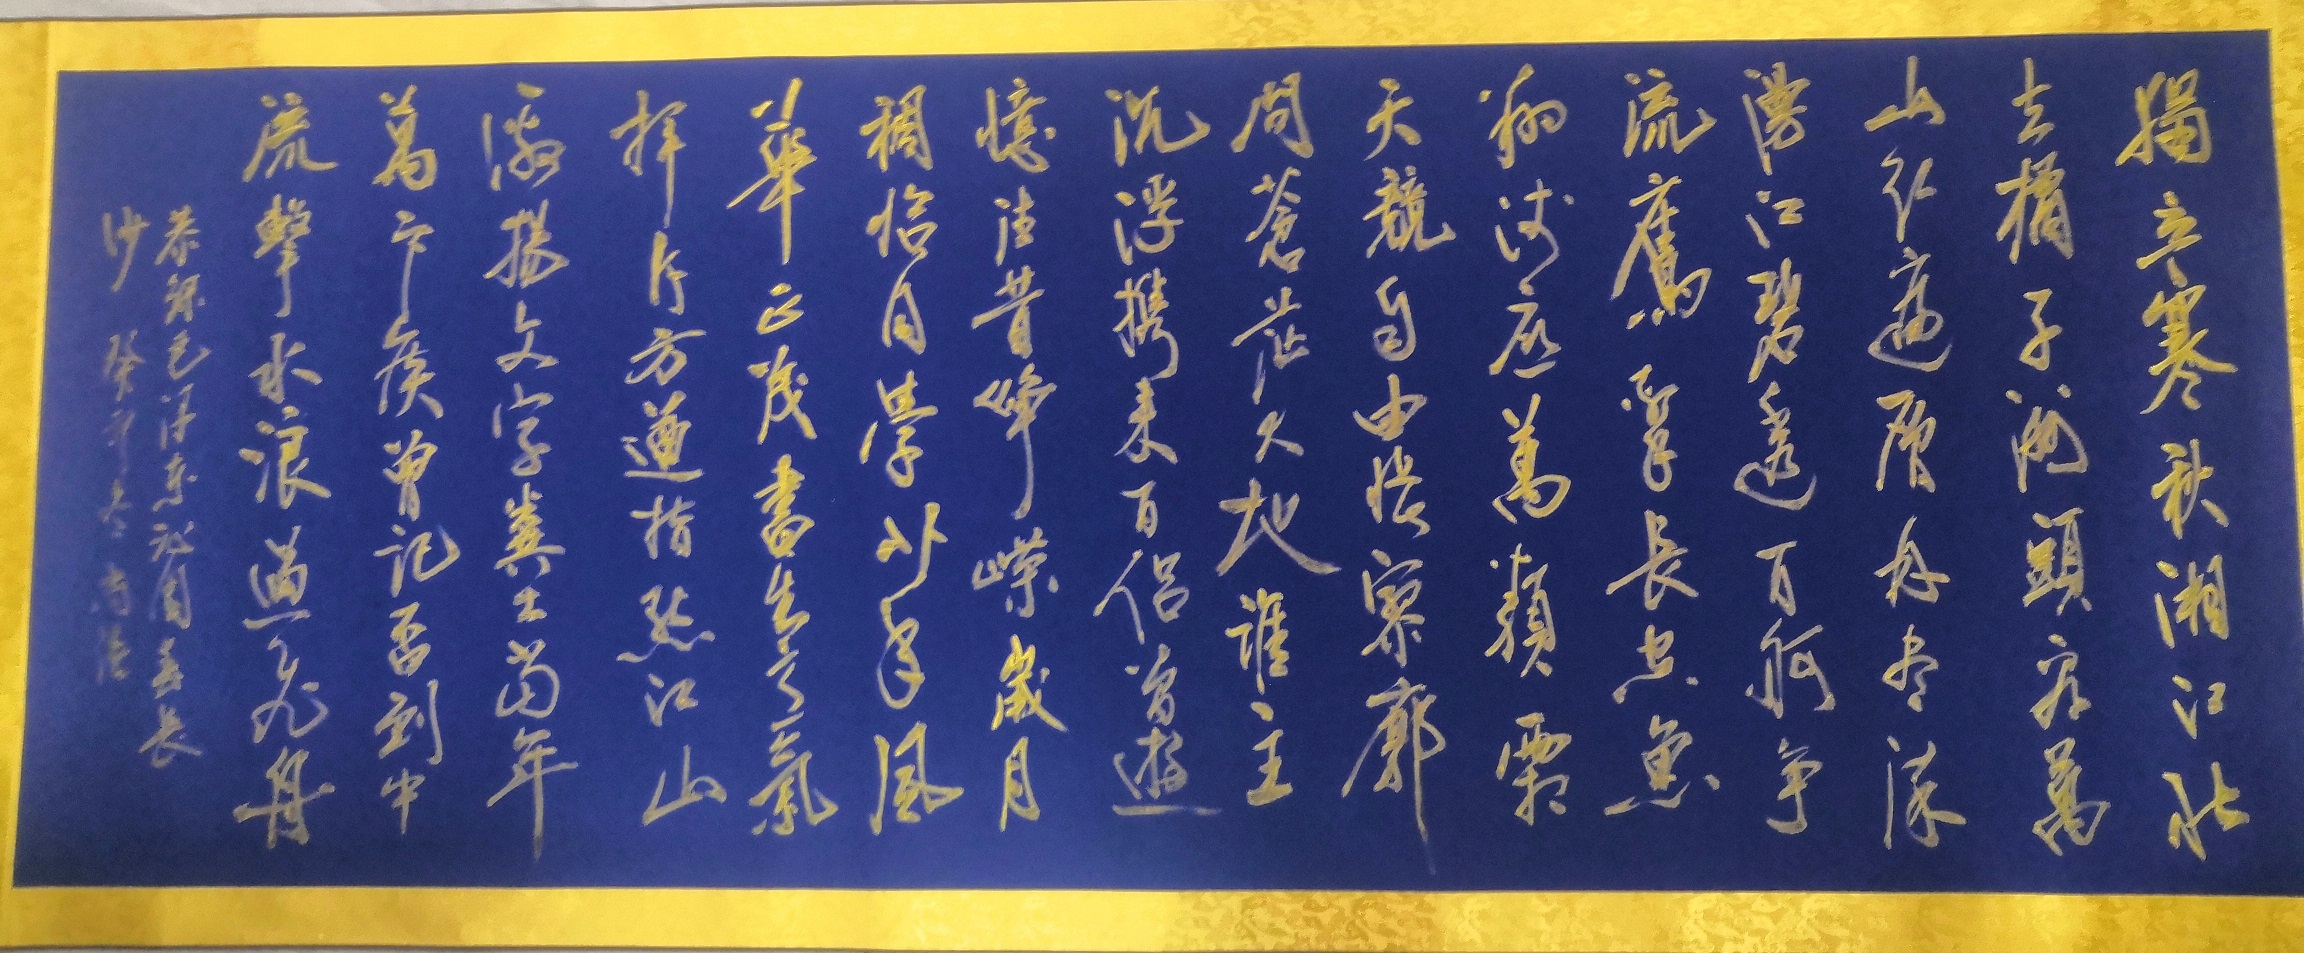 獨立寒秋湘江北
去橘子洲頭看萬
山紅遍層林盡染
漫江碧透百舸争
流鷹擊長空魚
翔淺底萬類霜
天競自由悵寥廓
問蒼茫大地誰主
沉浮携來百侣曾遊
憶往昔崢嶸歲月
稠恰同學少年風
華正茂書生意氣
揮斥方遒指點江山
激揚文字糞土當年
萬户侯曾記否到中
流擊水浪遏飛舟
恭録毛澤東沁園春長
沙 癸卯冬